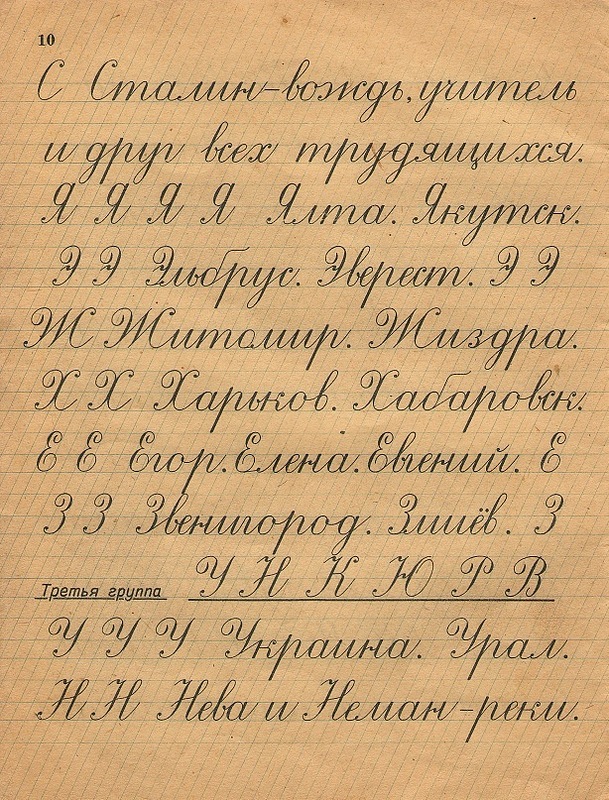 10
С Сталин-вождь, учитель
и друг всех трудящихся.
Я Я Я Я Ялта. Якутск.
Э Э Эльбрус. Эверест. Э Э
Ж Житомир. Жиздра.
Х Х Харьков. Хабаровск.
Е Е Егор. Елена. Евгений. Е
З З Звенигород. Змиёв. З
Третья группа У Н К Ю Р В
У У У Украина. Урал.
Н Н Нева и Неман-реки.